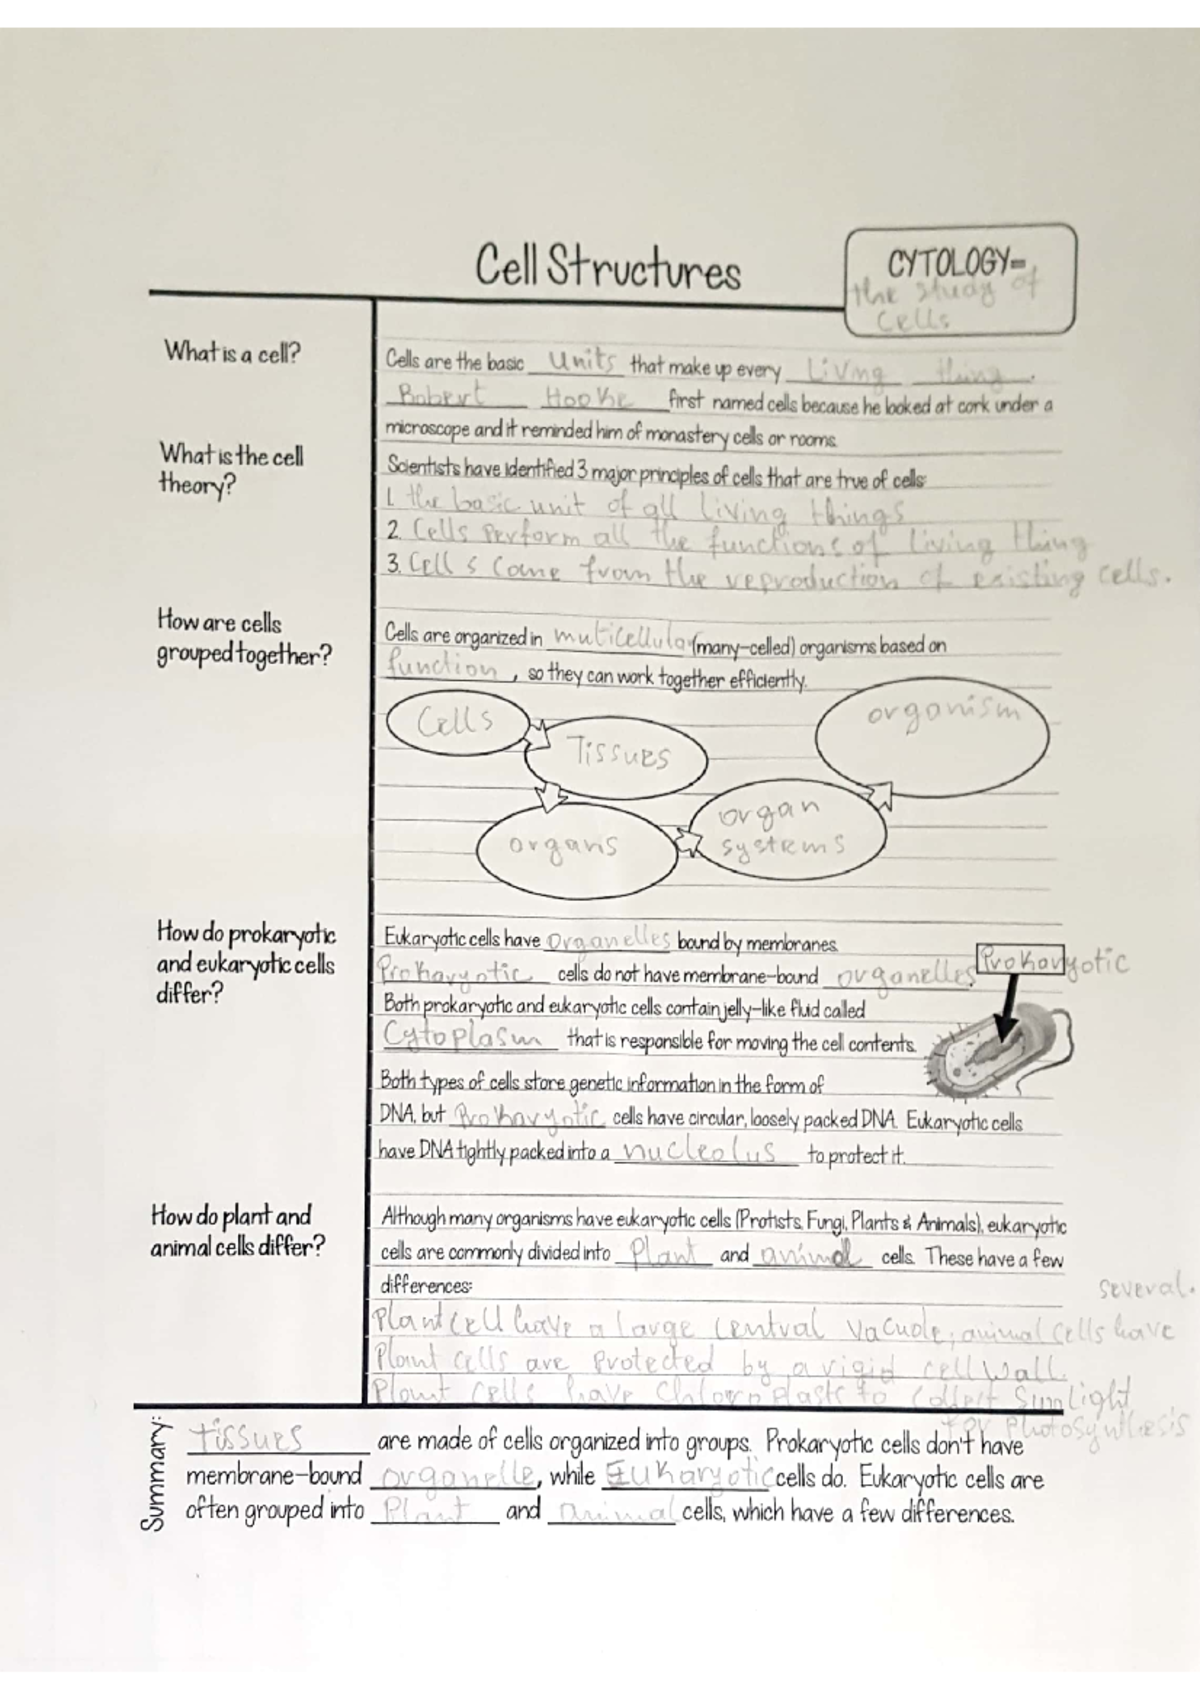 Cell Structures
CYTOLOGY=
the study of
cells
What is a cell?
Cells are the basic units that make up every Living thing.
Robert Hooke first named cells because he looked at cork under a
microscope and it reminded him of monastery cells or rooms.
What is the cell
theory?
Scientists have identified 3 major principles of cells that are true of cells:
1. the basic unit of all living things
2. Cells perform all the functions of living thing
3. Cells come from the reproduction of existing cells.
How are cells
grouped together?
Cells are organized in muticellular (many-celled) organisms based on
function, so they can work together efficiently.
Cells
Tissues
organs
organ
systems
organism
How do prokaryotic
and eukaryotic cells
differ?
Eukaryotic cells have Organelles bound by membranes.
Prokaryotic cells do not have membrane-bound organelles.
Prokaryotic
Both prokaryotic and eukaryotic cells contain jelly-like fluid called
Cytoplasm that is responsible for moving the cell contents.
Both types of cells store genetic information in the form of
DNA, but Prokaryotic cells have circular, loosely packed DNA. Eukaryotic cells
have DNA tightly packed into a nucleolus to protect it.
How do plant and
animal cells differ?
Although many organisms have eukaryotic cells (Protists, Fungi, Plants & Animals), eukaryotic
cells are commonly divided into Plant and animal cells. These have a few
differences:
Plant cell have a large central vacuole, animal cells have
several.
Plant cells are protected by a rigid cell wall
Plant cells have chloroplasts to collect Sunlight
for Photosynthesis
Summary:
tissues are made of cells organized into groups. Prokaryotic cells don't have
membrane-bound organelle, while Eukaryotic cells do. Eukaryotic cells are
often grouped into Plant and animal cells, which have a few differences.